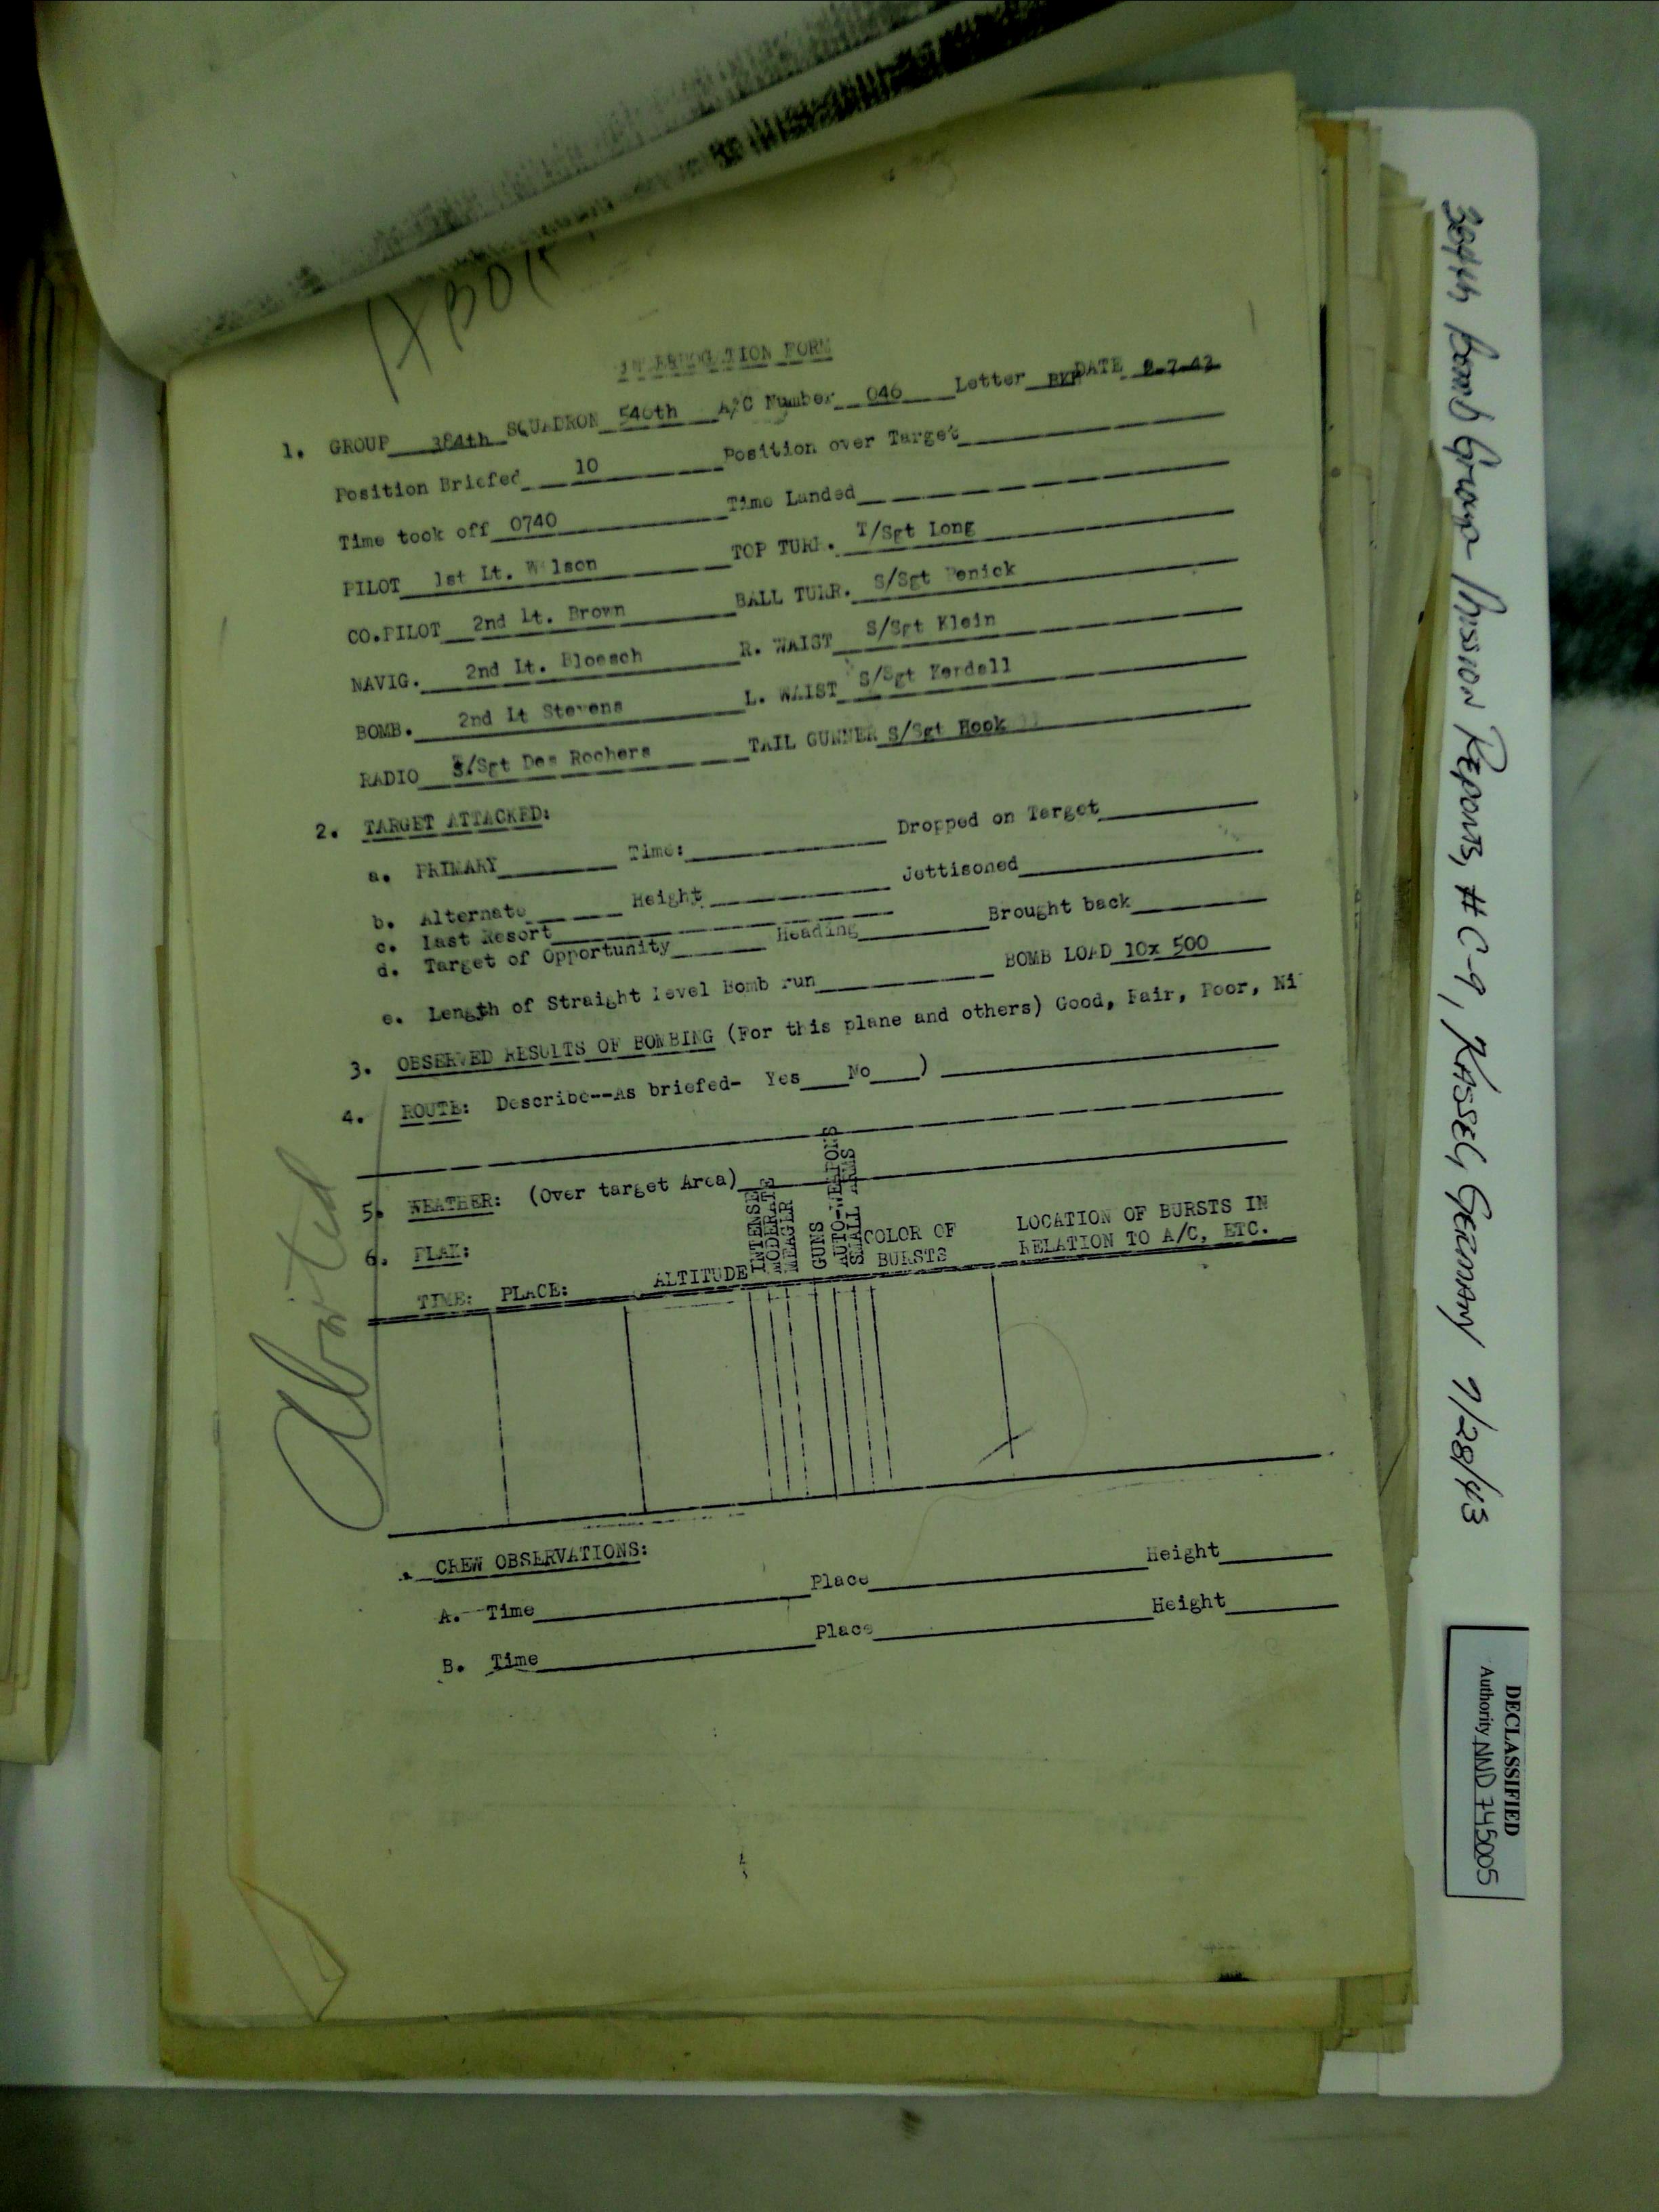 INTERROGATION FORM
1. GROUP 384th SQUADRON 546th A/C Number 046 Letter DATE
Position Briefed 10 Position over Target
Time took off 0740 Time Landed
PILOT 1st Lt. Wilson TOP TURR. T/Sgt Long
CO.PILOT 2nd Lt. Brown BALL TURR. S/Sgt Penick
NAVIG. 2nd Lt. Bloesch R. WAIST S/Sgt Klein
BOMB. 2nd Lt Stevens L. WAIST S/Sgt
RADIO S/Sgt Des Rochers TAIL GUNNER S/Sgt Hook
2. TARGET ATTACKED:
a. PRIMARY Time: Dropped on Target
b. Alternate Height Jettisoned
c. Last Resort
d. Target of Opportunity Heading Brought back
e. Length of Straight Level Bomb run BOMB LOAD 10x 500
3. OBSERVED RESULTS OF BOMBING (For this plane and others) Good, Fair, Poor, Ni
4. ROUTE: Describe--As briefed- Yes No )
5. WEATHER: (Over target Area)
6. FLAK:
TIME: PLACE: ALTITUDE INTENSE MODERATE MEAGER GUNS AUTO-WEAPONS SMALL ARMS COLOR OF BURSTS LOCATION OF BURSTS IN RELATION TO A/C, ETC.
Aborted
. CREW OBSERVATIONS:
A. Time Place Height
B. Time Place Height
384th Bomb Group Mission Reports, #C-9, Kassel, Germany 7/28/43
DECLASSIFIED
Authority NND 745005